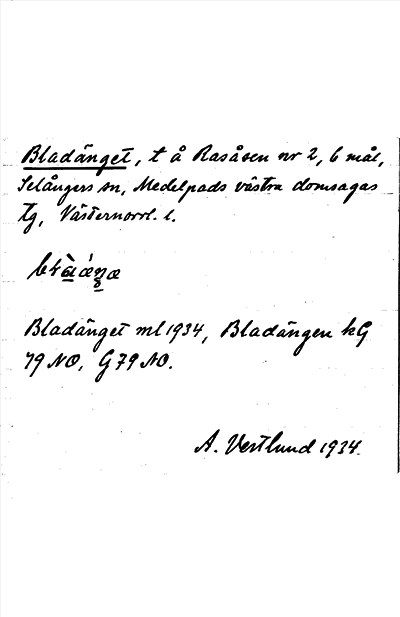 Bladänget, t å Rasåsen nr 2, 6 mål,
Selångers sn, Medelpads västra domsagas
tg, Västernorrl. l.
Bladänget ml 1934, Bladängen kG
79 NO, G 79 NO.
A. Vestlund 1934.